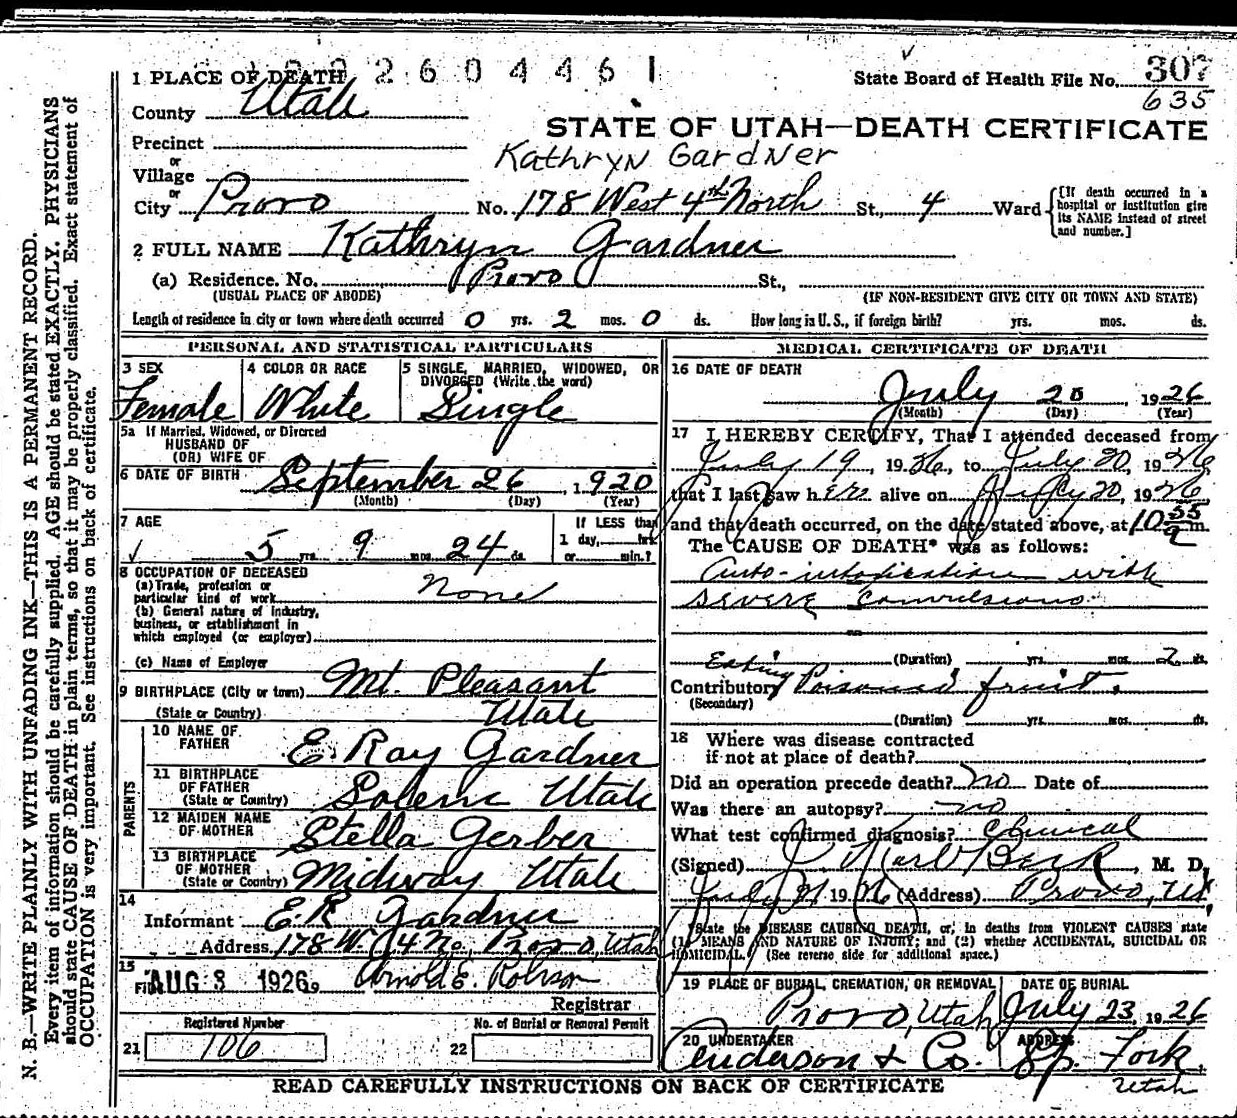 2 2 6 0 4 4 6 1
1 PLACE OF DEATH
State Board of Health File No. 307
635
County Utah
STATE OF UTAH—DEATH CERTIFICATE
Precinct
Kathryn Gardner
or
Village
or
City Provo No. 178 West 4th North St., 4 Ward
[If death occurred in a
hospital or institution give
its NAME instead of street
and number.]
2 FULL NAME Kathryn Gardner
(a) Residence. No. Provo St.,
(USUAL PLACE OF ABODE) (IF NON-RESIDENT GIVE CITY OR TOWN AND STATE)
Length of residence in city or town where death occurred 0 yrs. 2 mos. 0 ds. How long in U. S., if foreign birth? yrs. mos. ds.
PERSONAL AND STATISTICAL PARTICULARS
3 SEX 4 COLOR OR RACE 5 SINGLE, MARRIED, WIDOWED, OR
DIVORCED (Write the word)
Female White Single
5a If Married, Widowed, or Divorced
HUSBAND OF
(OR) WIFE OF
6 DATE OF BIRTH September 26, 1920
(Month) (Day) (Year)
7 AGE If LESS than
5 yrs. 9 mos. 24 ds. 1 day, hrs.
or min.?
8 OCCUPATION OF DECEASED
(a) Trade, profession or
particular kind of work None
(b) General nature of industry,
business, or establishment in
which employed (or employer)
(c) Name of Employer
9 BIRTHPLACE (City or town) Mt. Pleasant
(State or Country) Utah
PARENTS
10 NAME OF
FATHER E. Ray Gardner
11 BIRTHPLACE
OF FATHER
(State or Country) Salem Utah
12 MAIDEN NAME
OF MOTHER Stella Gerber
13 BIRTHPLACE
OF MOTHER
(State or Country) Midway Utah
14
Informant E.R Gardner
Address 178 W. 4 No. Provo, Utah
15
Filed AUG 3 1926 Arnold E. Robison
Registrar
Registered Number No. of Burial or Removal Permit
21 106 22
MEDICAL CERTIFICATE OF DEATH
16 DATE OF DEATH
July 20, 1926
(Month) (Day) (Year)
17 I HEREBY CERTIFY, That I attended deceased from
July 19, 1926, to July 20, 1926,
that I last saw her alive on July 20, 1926,
and that death occurred, on the date stated above, at 10 55 a m.
The CAUSE OF DEATH* was as follows:
Auto-intoxication with
severe convulsions
(Duration) yrs. mos. 2 ds.
Eating
Contributory Poisoned fruit.
(Secondary)
(Duration) yrs. mos. ds.
18 Where was disease contracted
if not at place of death?
Did an operation precede death? no Date of
Was there an autopsy? no
What test confirmed diagnosis? Clinical
(Signed) J Karl Beck, M. D.
July 21 1926 (Address) Provo, Ut
*State the DISEASE CAUSING DEATH, or, in deaths from VIOLENT CAUSES state
(1) MEANS AND NATURE OF INJURY; and (2) whether ACCIDENTAL, SUICIDAL OR
HOMICIDAL. (See reverse side for additional space.)
19 PLACE OF BURIAL, CREMATION, OR REMOVAL DATE OF BURIAL
Provo, Utah July 23, 1926
20 UNDERTAKER ADDRESS
Anderson & Co. Sp. Fork,
Utah
READ CAREFULLY INSTRUCTIONS ON BACK OF CERTIFICATE
N. B.—WRITE PLAINLY WITH UNFADING INK—THIS IS A PERMANENT RECORD.
Every item of information should be carefully supplied. AGE should be stated EXACTLY. PHYSICIANS
should state CAUSE OF DEATH in plain terms, so that it may be properly classified. Exact statement of
OCCUPATION is very important. See instructions on back of certificate.